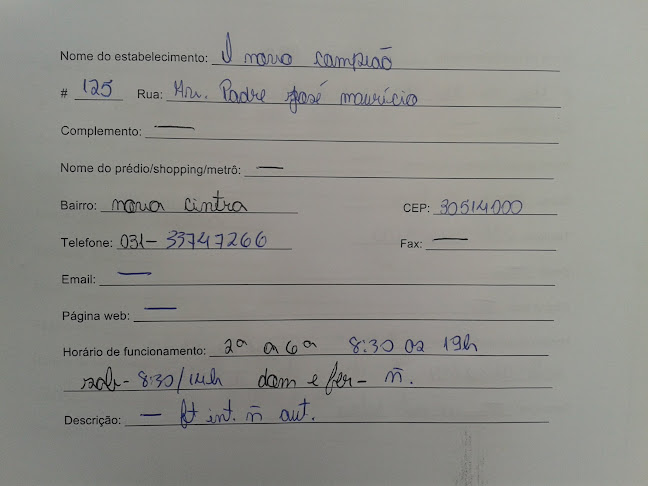 Nome do estabelecimento: O novo campeão
# 125 Rua: Av. Padre José maurício
Complemento: —
Nome do prédio/shopping/metrô: —
Bairro: nova cintra CEP: 30514000
Telefone: 031- 33747266 Fax: —
Email: —
Página web: —
Horário de funcionamento: 2ª a 6ª 8:30 as 19h
sab- 8:30/14h dom e fer- ñ.
Descrição: — ft int. ñ aut.